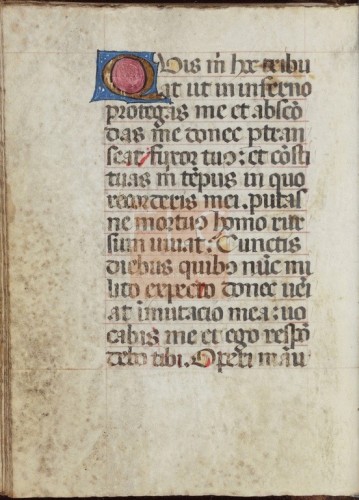 Quis m̄ hᷓ tribu
at ut in inferno
protegas me et absco᷒
das me donec p̄tran
seat furor tuꝰ: et cōsti
tuas m̄ tēpus in quo
recorderis mei. putas
ne mortuꝰ homo rur
sum uiuat: Cunctis
diebus quibꝰ nūc mi
lito expecto donec ueı̄
at īmutacio mea: uo
cabis me et ego respō
debo tibi. Operi man